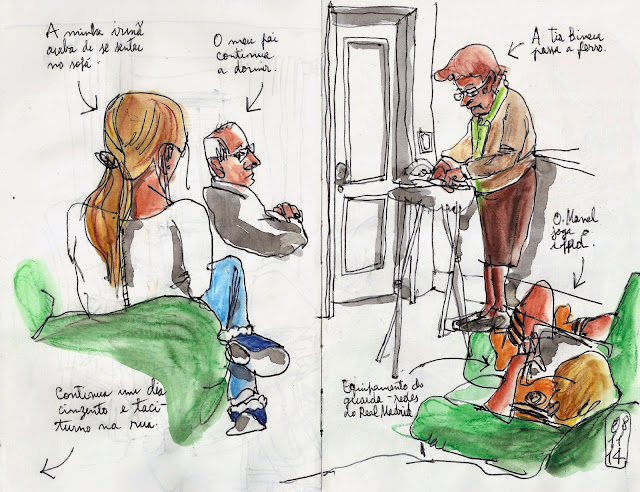 A minha irmã
acaba de se sentar
no sofá.
O meu pai
continua
a dormir.
A tia Bineca
passa a ferro.
O Manel
joga o
iPad.
Continua um dia
cinzento e taci-
turno na rua.
Equipamento do
guarda-redes
do Real Madrid
08
11
14